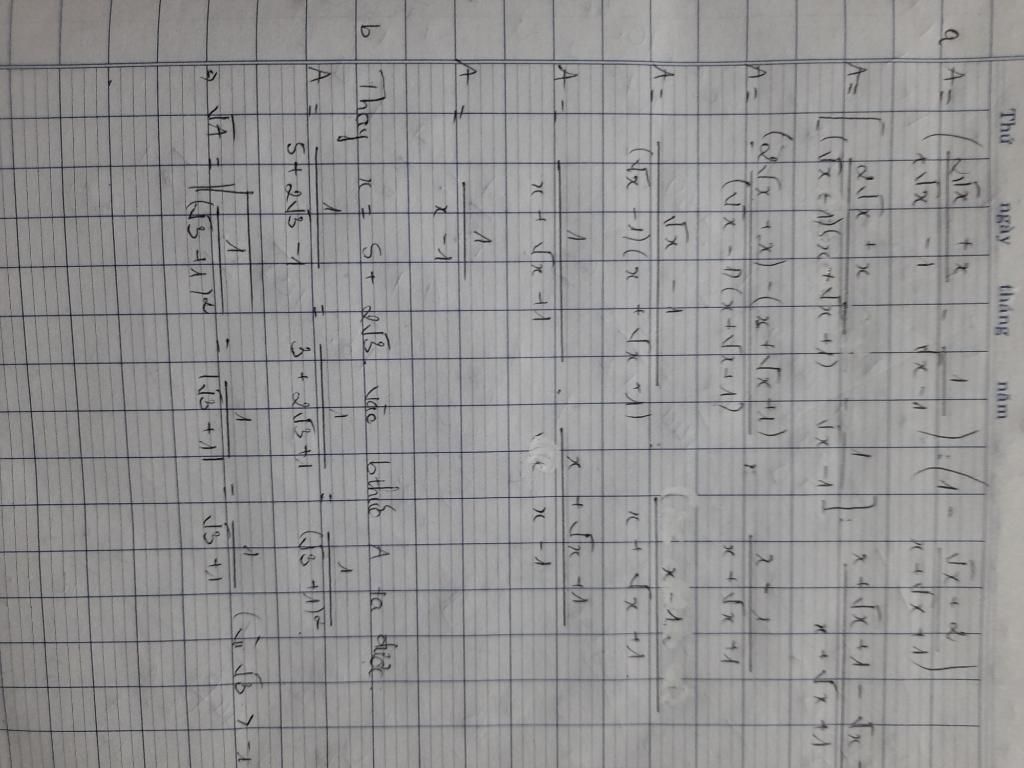 Thứ ngày tháng năm
a A = (2√x + x / x√x - 1 - 1 / √x - 1) : (1 - √x + 2 / x + √x + 1)
A = [2√x + x / (√x - 1)(x + √x + 1) - 1 / √x - 1] : x + √x + 1 - √x - / x + √x + 1
A = (2√x + x) - (x + √x + 1) / (√x - 1)(x + √x + 1) : x - 1 / x + √x + 1
A = √x - 1 / (√x - 1)(x + √x + 1) : x - 1 / x + √x + 1
A = 1 / x + √x + 1 . x + √x + 1 / x - 1
A = 1 / x - 1
b Thay x = 5 + 2√3 vào bthức A ta được
A = 1 / 5 + 2√3 - 1 = 1 / 3 + 2√3 + 1 = 1 / (√3 + 1)²
=> √A = √1 / (√3 + 1)² = 1 / |√3 + 1| = 1 / √3 + 1 (vì √3 > -1